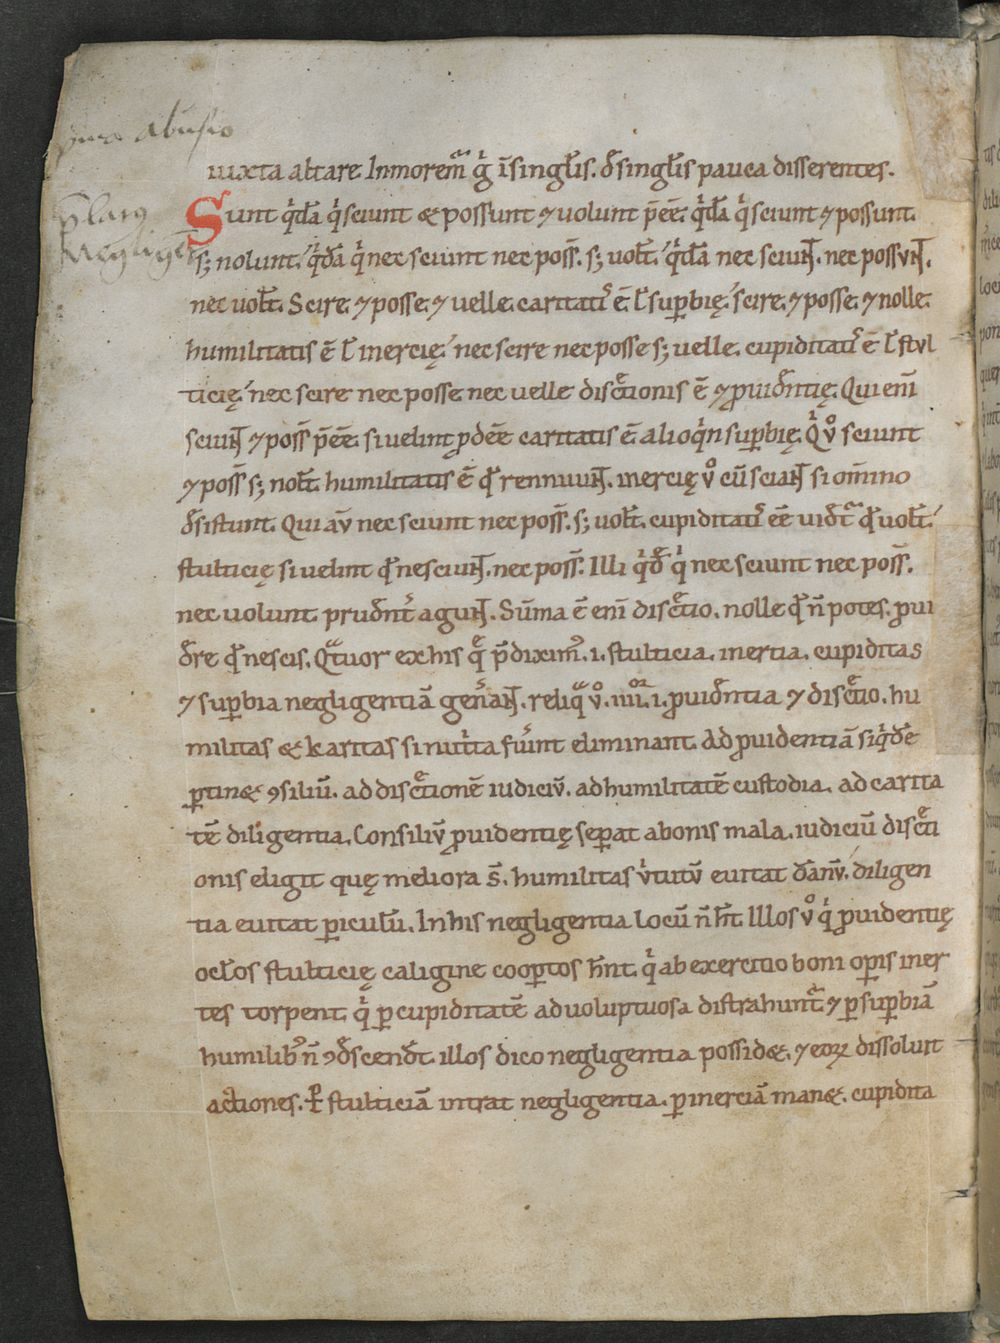 abusio
iuxta altare Inmorem̄ g̊ īsingłis. đsingłis pauca disserentes.
p̄latꝰ
Sunt q̇dā q̇ sciunt & possunt ⁊ uolunt p̄eē. q̇dā q̇ sciunt ⁊ possunt.
Negligē
s; nolunt. q̇dā q̇ nec sciunt nec poss̄. s; uolt̄. q̇dā nec sciunt. nec possunt.
nec uolt̄. Scire ⁊ posse ⁊ uelle caritatis ē ł supbię. scire ⁊ posse ⁊ nolle
humilitatis ē ł inercię. nec scire nec posse s; uelle. cupiditatis ē ł stul
ticię. nec scire nec posse nec uelle discͣtionis ē ⁊ ꝓuiđntię. Qui enī
sciunt ⁊ poss̄ p̄eē. si uelint ꝓdeē caritatis ē. alioq̇n supbię. Q̇ v̊ sciunt
⁊ poss̄ s; nolt̄. humilitatis ē qđ rennuunt. inercię v̊ cū sciant si om̄ino
đsistunt. Qui aū nec sciunt nec poss̄. s; uolt̄. cupiditatis eē uidt̄ qđ uolt̄.
stulticię si uelint qđ nesciunt. nec poss̄. Illi q̇đ q̇ nec sciunt nec poss̄.
nec uolunt pruđnt̄ agunt. Sūma ē enī discͣtio. nolle qđ n̄ potes. ꝓui
đre qđ nescis. Qͣtuor ex his q̄ p̄diximꝰ .i. stulticia. inertia. cupiditas
⁊ supbia negligentiā geňant. reliqͣ v̊ .iiii. .i. ꝓuiđntia ⁊ discͣtio. hu
militas & karitas si nutͥta fuint eliminant. Ad ꝓuidentiā siq̇đe
ꝑtin& ꝯsiliū. ad discͣtionē iudiciū. ad humilitatē custodia. ad carita
tē diligentia. Consiliū ꝓuidentię sepat abonis mala. iudiciū discͣti
onis eligit quę meliora s̄. humilitas v̇tutū euitat dānū. diligen
tia euitat ꝑiculū. In his negligentia locū n̄ ht̄. Illos v̊ q̇ ꝓuidentię
ocłos stulticię caligine coopertos hn̄t. q̇ ab exercitio boni opis iner
tes torpent. q̇ ꝑ cupiditatē ad uoluptuosa distrahuntͬ ⁊ ꝑ supbiā
humilibꝰ n̄ ꝯđscenđt. illos dico negligentia possid&. ⁊ eoꝝ dissoluit
actiones. Ꝑ stulticiā intrat negligentia. ꝑ inerciā man&. cupidita